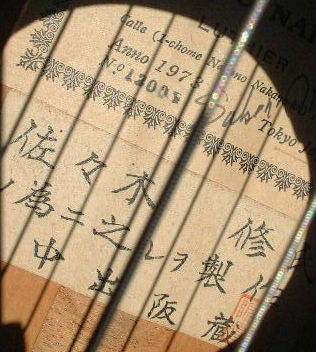 LUTHIER
Calle (1-chome
Anno 1973
N.º 12001
Tokyo
佐々木 修 氏
ノ為ニ之レヲ製作
中出阪蔵